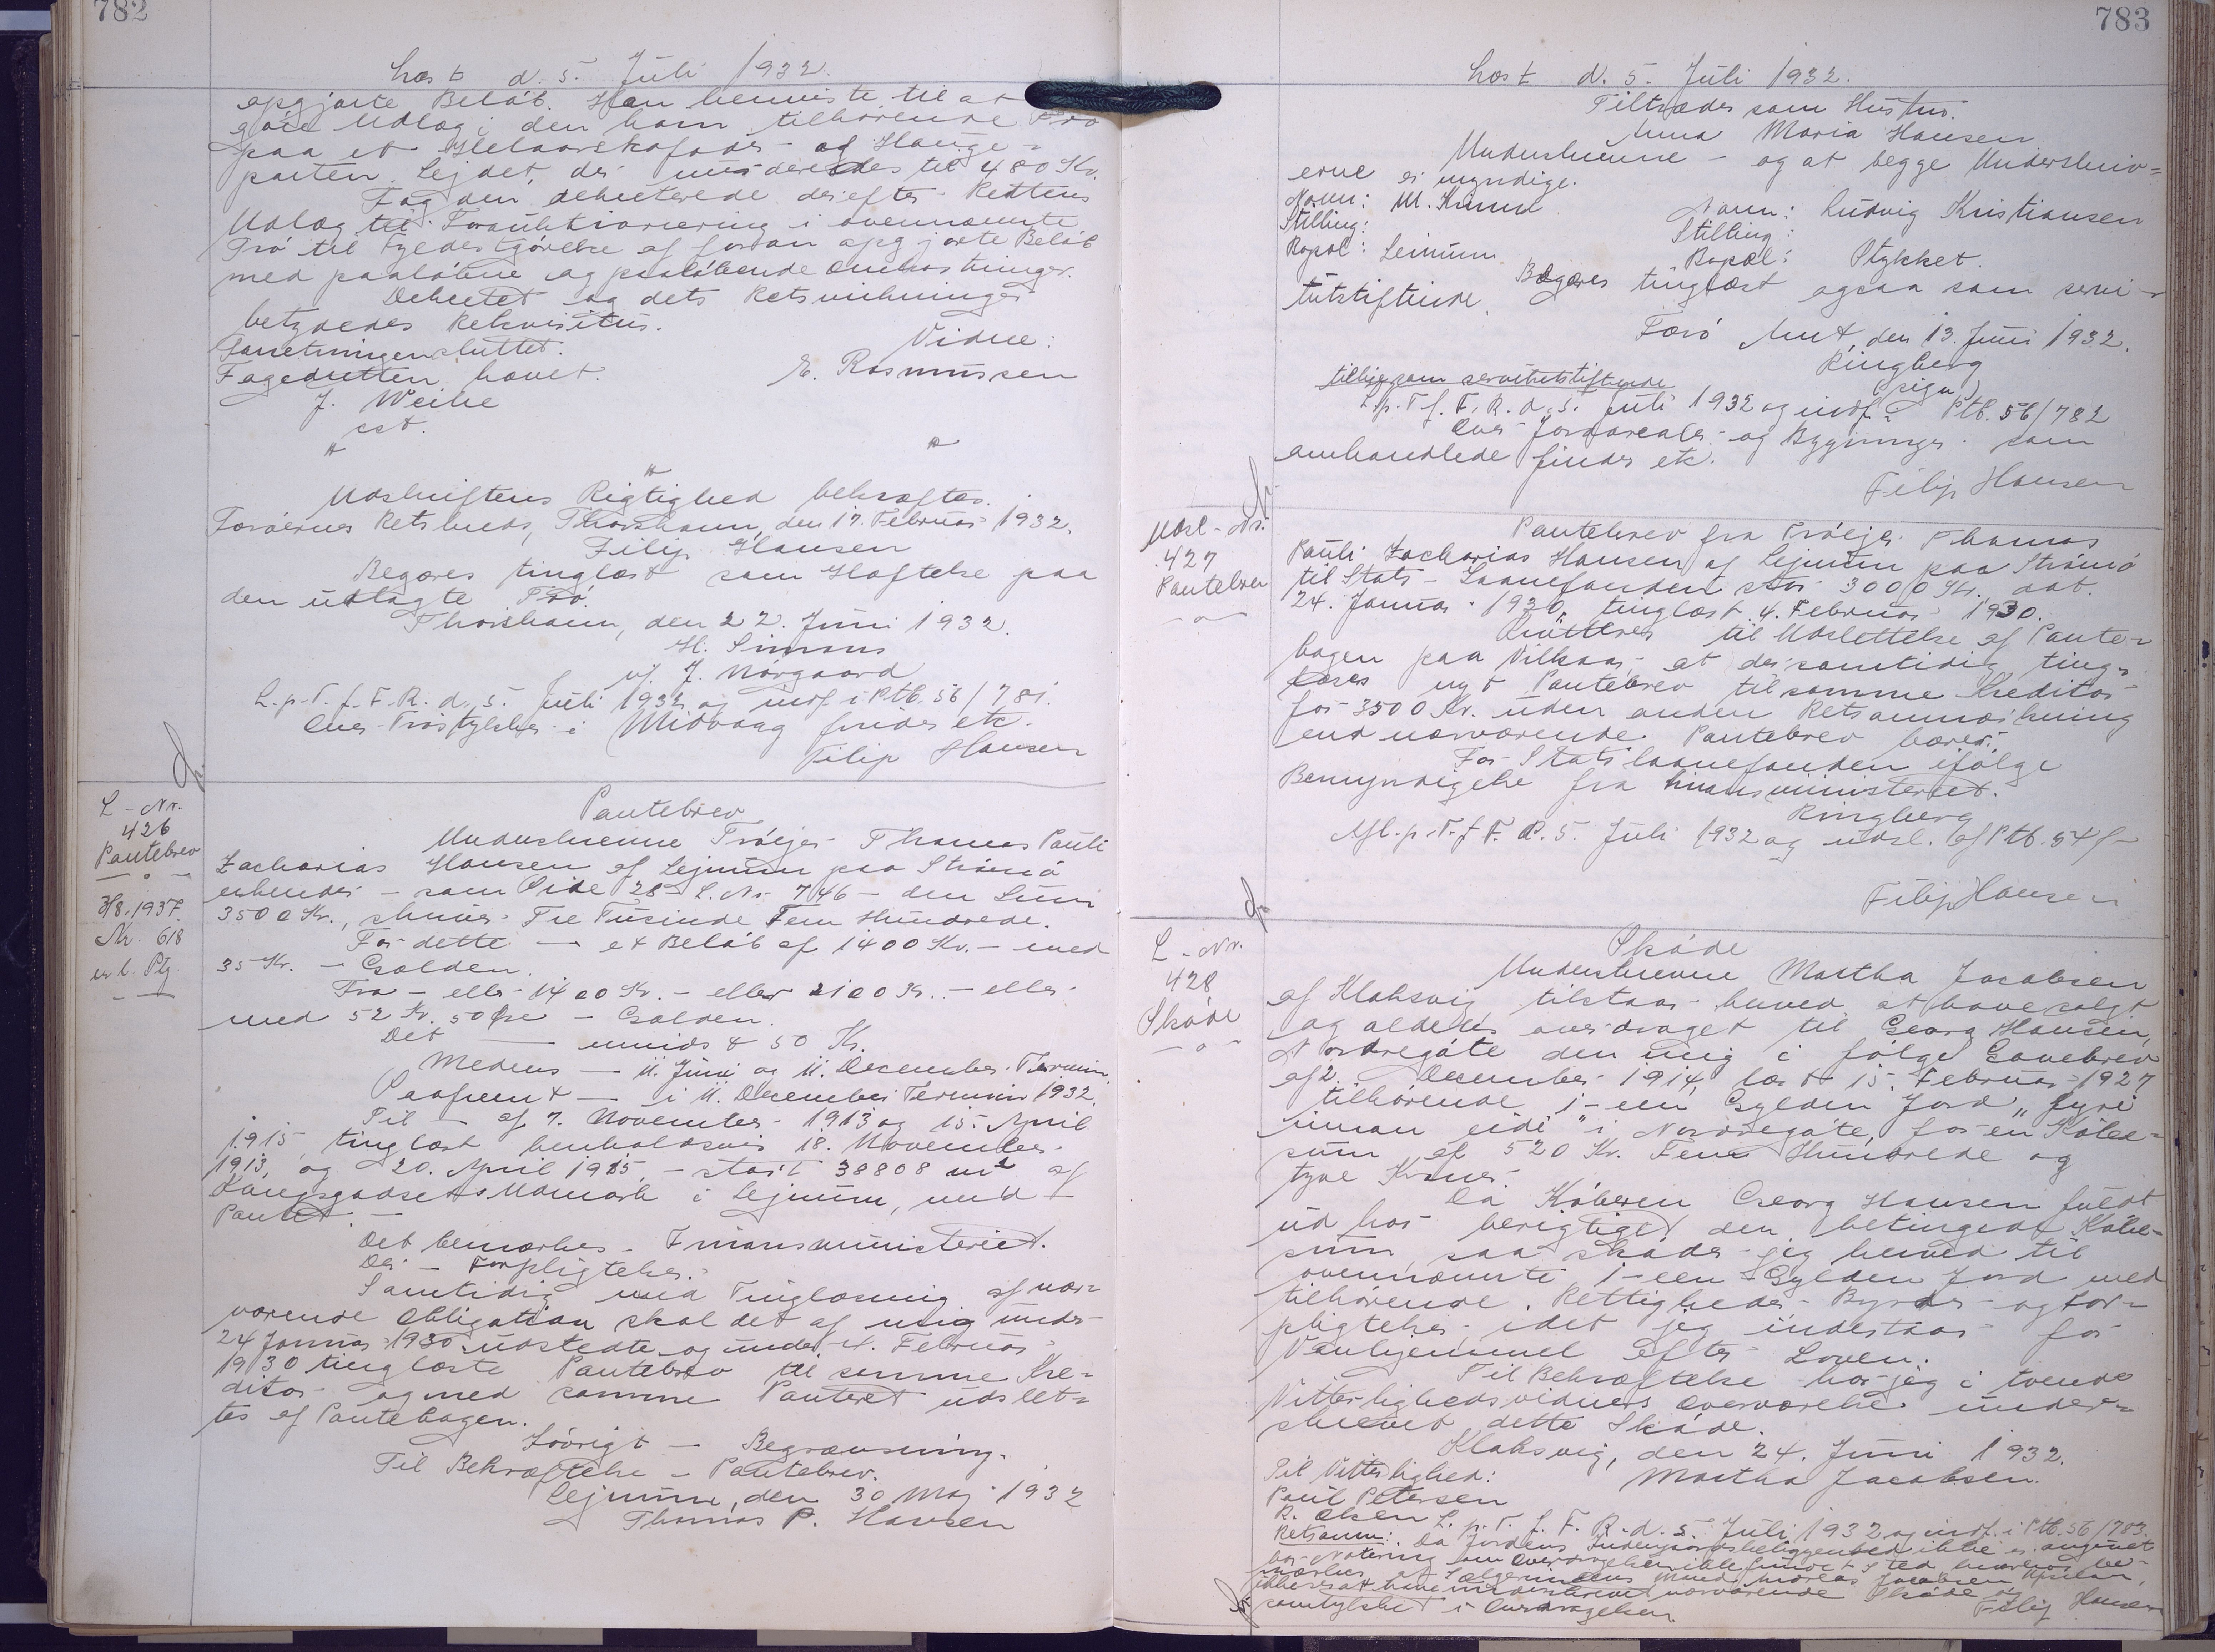 782
Læst d. 5. Juli 1932.
opgjorte Beløb. Han henviste til at
gøre Udlæg i den ham tilhørende Trø
paa et Helaarskofoder af Hauge-
parten Lejdet, der vurderedes til 480 Kr.
Fogden dekreterede derefter Rettens
Udlæg til Forauktionering i ovennævnte
Trø til Fyldestgørelse af foran opgjorte Beløb
med paaløbne og paaløbende Omkostninger.
Dekretet og dets Retsvirkninger
betydedes Rekvisitus.
Forretningen sluttet.
Vidne:
Fogedretten hævet.
E. Rasmussen
J. Weihe
cst.
Udskriftens Rigtighed bekræftes.
Færøernes Retskreds, Thorshavn, den 17. Februar 1932.
Filip Hansen
Begæres tinglæst som Hæftelse paa
den udlagte Trø.
Thorshavn, den 22. Juni 1932.
H. Simons
v/ J. Nørgaard
L. p. T. f. F. R. d. 5. Juli 1932 og indf. i Ptb. 56/781.
Over Trøstykker i Midvaag findes etc.
Filip Hansen
L-Nr.
426
Pantebrev
3/8. 1937.
Nr. 618
Pantebrev
Underskrevne Trøejer Thomas Pauli
Zacharias Hansen af Lejnum paa Strømø
erkender - som Side 28 L. Nr. 746 - den Sum
3500 Kr., skriver Tre Tusinde Fem Hundrede.
For dette - et Beløb af 1400 Kr. - med
35 Kr. - Gælden.
Fra - eller 1400 Kr. - eller 2100 Kr. - eller
med 52 Kr. 50 Øre - Gælden.
Det - mindst 50 Kr.
Medens - 11. Juni og 11. December Termin.
Paafrent - i 11. December Termin 1932.
Til - af 7. November 1913 og 15. April
1915, tinglæst henholdsvis 18. November
1913, og 20. April 1915, - stort 38808 m² af
Kongsgodsets Udmark i Lejnum, med -
Pantet. -
Det bemærkes - Finansministeriet.
Der - Forpligtelser.
Samtidig med Tinglæsning af nær-
værende Obligation skal det af mig under
24 Januar 1930 udstedte og under 4. Februar
1930 tinglæste Pantebrev til samme Kre-
ditor og med samme Panteret udslet-
tes af Pantebogen.
Iøvrigt - Begrænsning.
Til Bekræftelse - Pantebrev.
Lejnum, den 30 Maj 1932
Thomas P. Hansen
783
Læst d. 5. Juli 1932.
Tiltrædes som Hustru.
Anna Maria Hansen
Underskrevne - og at begge Underskriv-
erne er myndige.
Navn: M. Krund
Navn: Ludvig Kristiansen
Stilling:
Stilling:
Bopæl: Leinum
Bopæl: Stykket.
Begæres tinglæst ogsaa som servi-
tutstiftende.
Færø Amt, den 13. Juni 1932.
Ringberg
(sign)
tillige som servitutstiftende
L. p. T. f. F. R. d. 5. Juli 1932 og indf. i Ptb. 56/782
Over Jordarealer og Bygninger som
omhandlede findes etc.
Filip Hansen
Udsl-Nr.
427
Pantebrev
Pantebrev fra Trøejer Thomas
Pauli Zacharias Hansen af Lejnum paa Strømø
til Stats-Laanefonden stor 3000 Kr., dat.
24. Januar 1930, tinglæst 4. Februar 1930.
Kvitteres til Udslettelse af Pante-
bogen paa Vilkaar, at der samtidig ting-
læses nyt Pantebrev til samme Kreditor
for 3500 Kr. uden anden Retsanmærkning
end nærværende Pantebrev bærer.
For Statslaanefonden ifølge
Bemyndigelse fra Finansministeriet.
Ringberg
Afl. p. T. f. F. R. 5. Juli 1932 og udsl. af Ptb. 54/
Filip Hansen
L-Nr.
428
Skøde
Skøde
Underskrevne Martha Jacobsen
af Klaksvig tilstaar herved at have solgt
og aldeles overdraget til Georg Hansen,
Nordregøte den mig i følge Gavebrev
af 2. December 1914, læst 15. Februar 1927
tilhørende 1-een Gylden Jord „fyri
innan eidi" i Nordregøte, for en Købe-
sum af 520 Kr. Fem Hundrede og
tyve Kroner.
Da Køberen Georg Hansen fuldt
ud har berigtiget den betingede Købe-
sum, saa skøder jeg herved til
ovennævnte 1-een Gylden Jord med
tilhørende Rettigheder, Byrder og For-
pligtelser, idet jeg indestaar for
Vanhjemmel efter Loven.
Til Bekræftelse har jeg i tvende
Vitterlighedsvidners Overværelse under-
skrevet dette Skøde.
Klaksvig, den 24. Juni 1932.
Til Vitterlighed:
Martha Jacobsen.
Poul Petersen
R. Olsen
L. p. T. f. F. R. d. 5. Juli 1932 og indf. i Ptb. 56/783.
Retsanm: Da Jordens Indengærdsbeliggenhed ikke er angivet
har Notering om Overdragelsen ikke fundet Sted, hvorhos be-
mærkes, at Sælgerindens Mand, Andreas Jacobsen
ikke ses at have underskrevet nærværende Skøde og
samtykket i Overdragelsen.
Filip Hansen